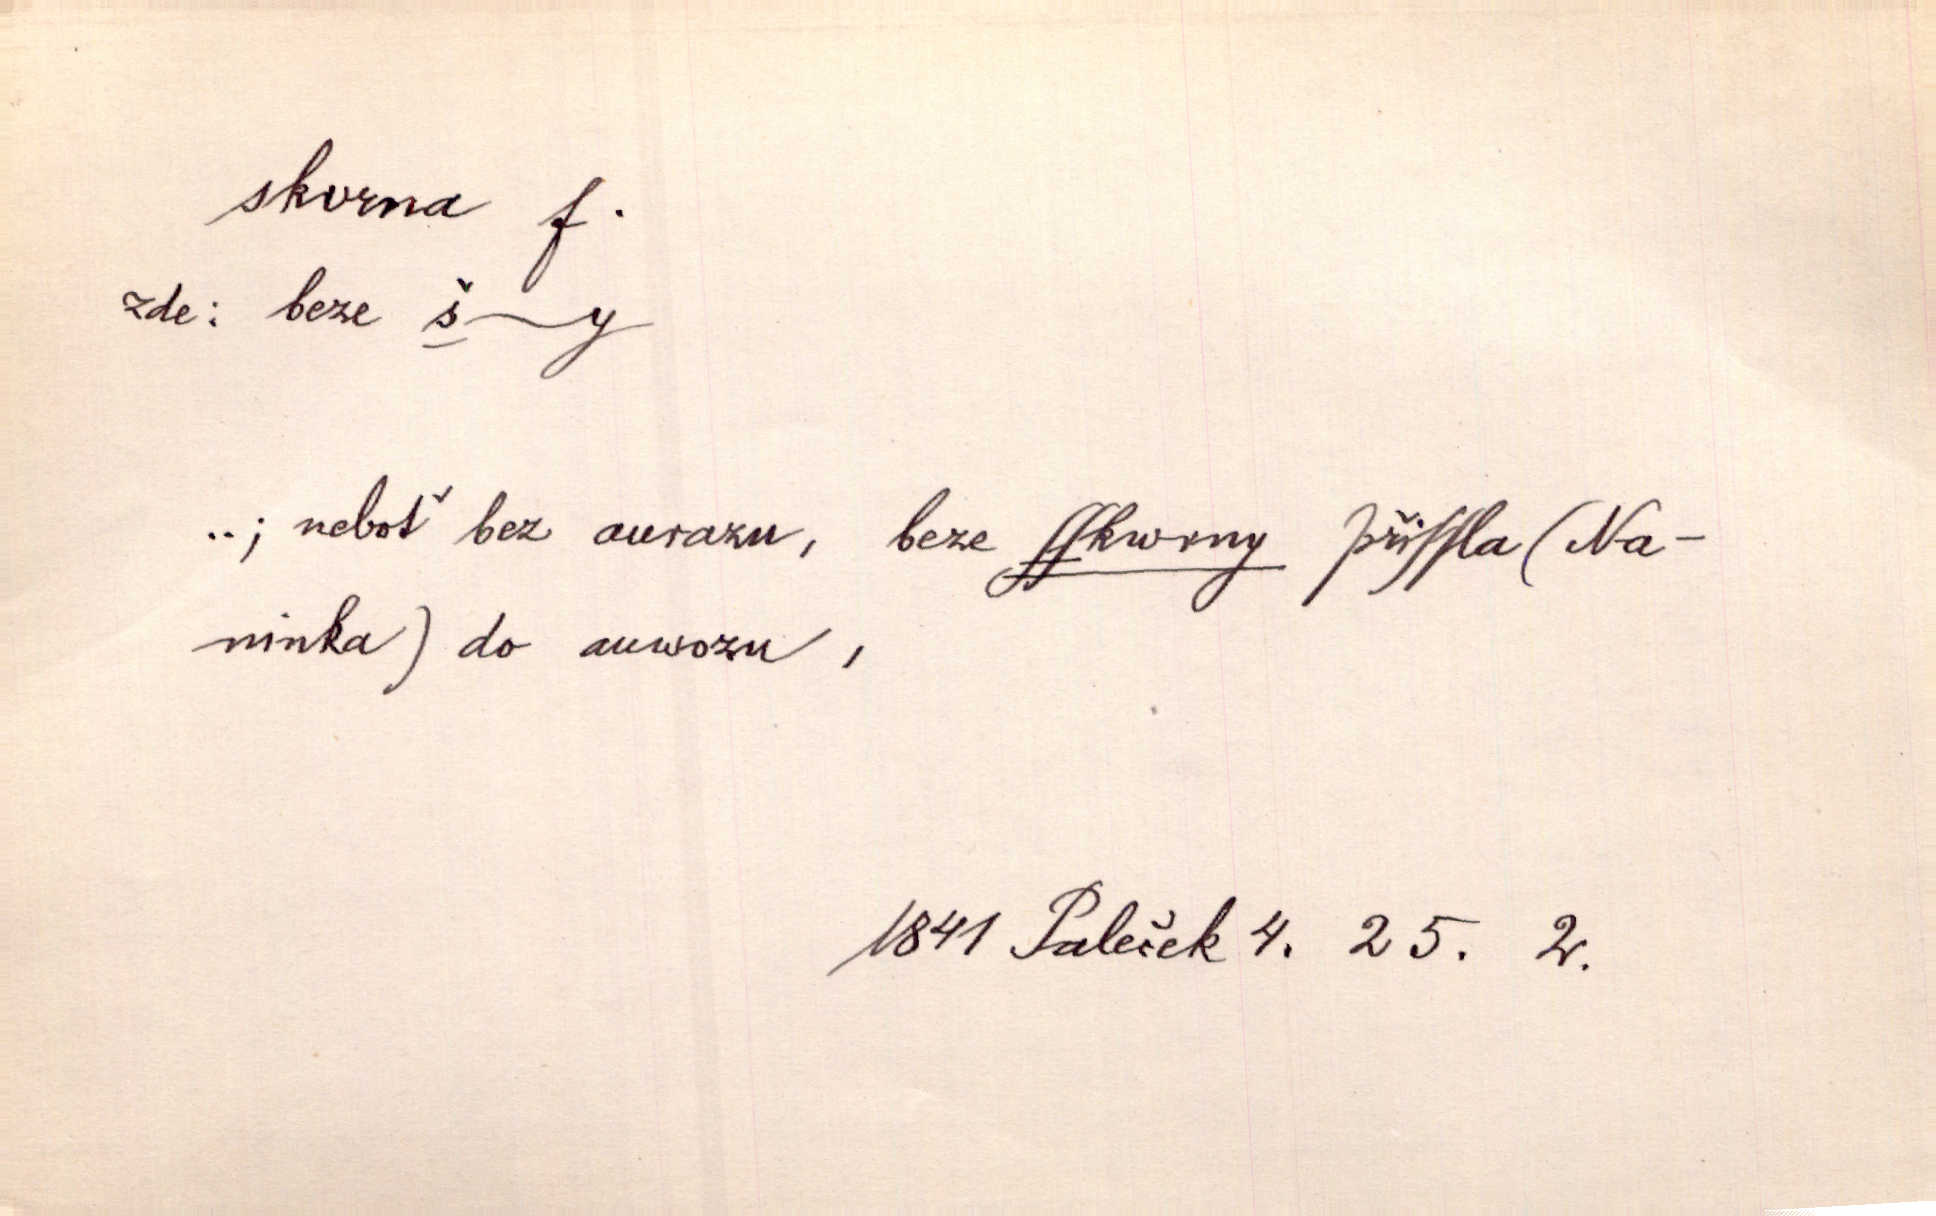 skvrna f.
zde: beze š~y
..; neboť bez aurazu, beze ſſkwrny přiſſla (Na-
ninka) do auwozu,
1841 Paleček 4. 25. 2.